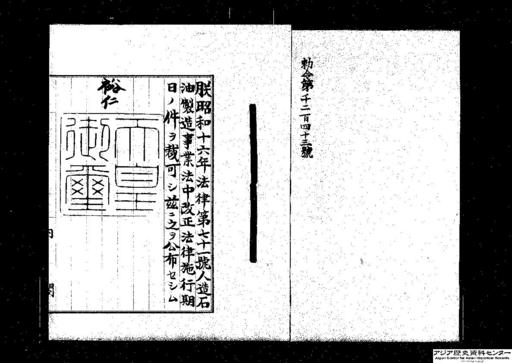 勅令第千二百四十三號
朕昭和十六年法律第七十一號人造石
油製造事業法中改正法律施行期
日ノ件ヲ裁可シ茲ニ之ヲ公布セシム
裕仁
天皇
御璽
内
閣
アジア歴史資料センター
Japan Center for Asian Historical Records